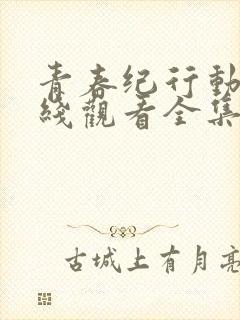 青春纪行動
綫觀看全集
古城上有月亮